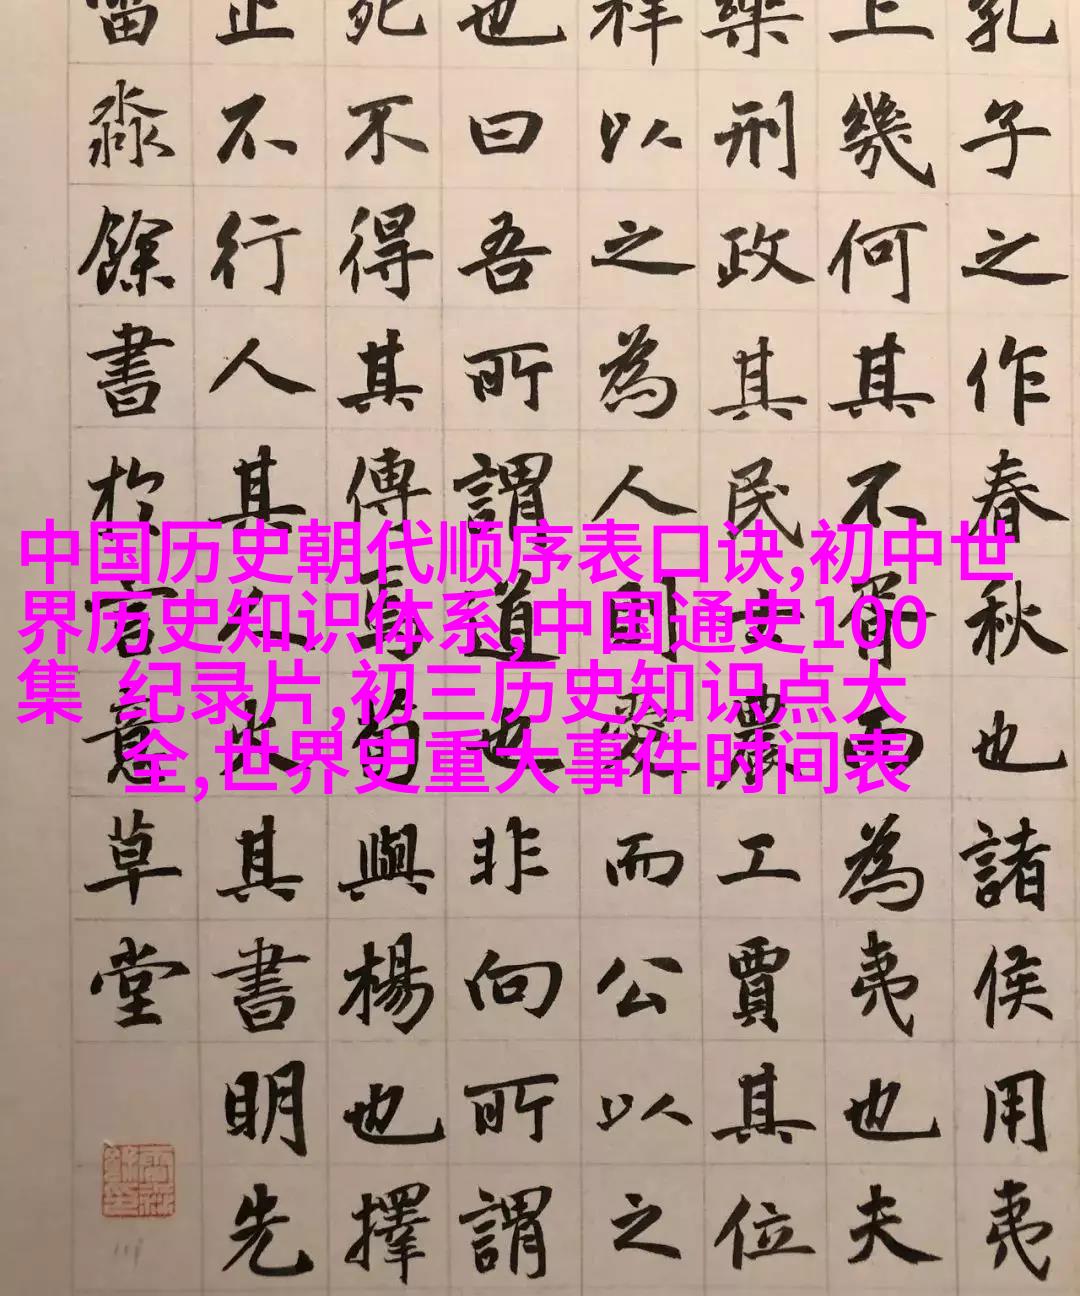 中国历史朝代顺序表口诀,初中世
界历史知识体系,中国通史100
集 纪录片,初三历史知识点大
全,世界史重大事件时间表
孔子之作春秋也諸侯用夷
上幾何其不胥而為夷也夫
樂刑政其民士農工賈其位
祥以之為人則愛而公以之
也曰吾所謂道也非向所謂
死不得其傳焉荀與楊也擇
止不行人其人火其書明先
淼餘書於意草堂